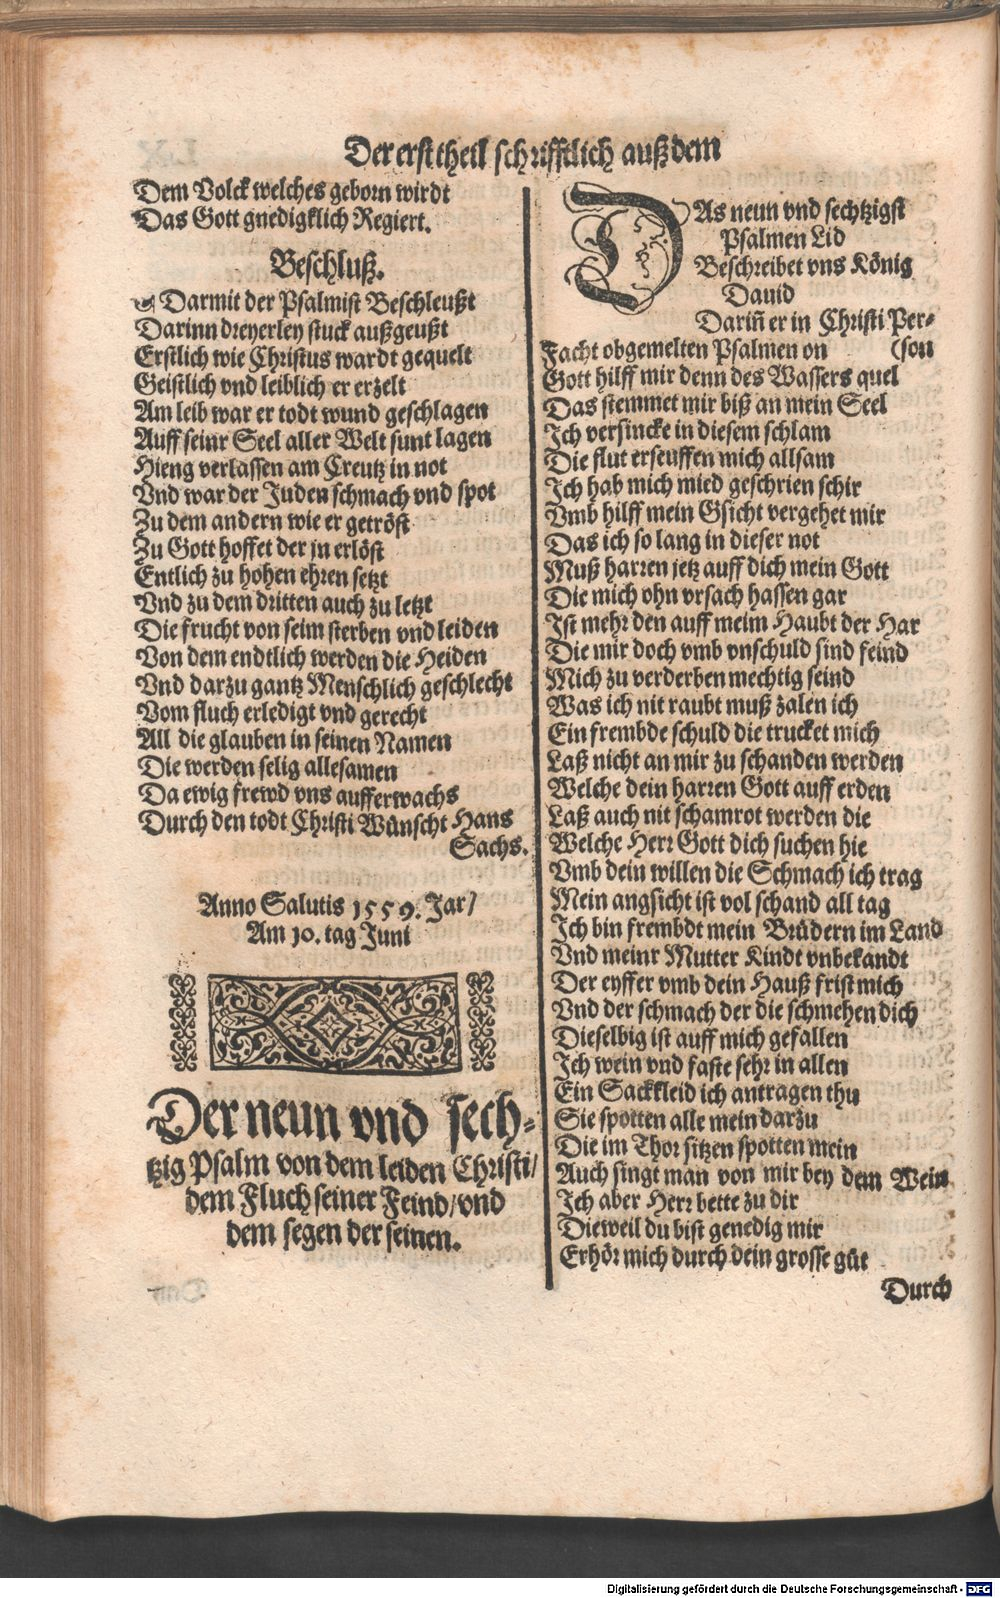 Der erst theil schrifftlich auß dem
Dem Volck welches geborn wirdt
Das Gott gnedigklich Regiert.
Beschluß.
Darmit der Psalmist Beschleußt
Darinn dreyerley stuck außgeußt
Erstlich wie Christus wardt gequelt
Geistlich vnd leiblich er erzelt
Am leib war er todt wund geschlagen
Auff seinr Seel aller Welt sunt lagen
Hieng verlassen am Creutz in not
Vnd war der Juden schmach vnd spot
Zu dem andern wie er getröst
Zu Gott hoffet der jn erlöst
Entlich zu hohen ehren setzt
Vnd zu dem dritten auch zu letzt
Die frucht von seim sterben vnd leiden
Von dem endtlich werden die Heiden
Vnd darzu gantz Menschlich geschlecht
Vom fluch erledigt vnd gerecht
All die glauben in seinen Namen
Die werden selig allesamen
Da ewig frewd vns aufferwachs
Durch den todt Christi Wünscht Hans
Sachs.
Anno Salutis 1559. Jar/
Am 10. tag Juni
Der neun vnd sech-
tzig Psalm von dem leiden Christi/
dem Fluch seiner Feind/vnd
dem segen der seinen.
DAs neun vnd sechtzigst
Psalmen Lid
Beschreibet vns König
Dauid
Dariñ er in Christi Per-
Facht obgemelten Psalmen on (son
Gott hilff mir denn des Wassers quel
Das stemmet mir biß an mein Seel
Ich versincke in diesem schlam
Die flut erseuffen mich allsam
Ich hab mich mied geschrien schir
Vmb hilff mein Gsicht vergehet mir
Das ich so lang in dieser not
Muß harren jetz auff dich mein Gott
Die mich ohn vrsach hassen gar
Ist mehr den auff meim Haubt der Har
Die mir doch vmb vnschuld sind feind
Mich zu verderben mechtig seind
Was ich nit raubt muß zalen ich
Ein frembde schuld die trucket mich
Laß nicht an mir zu schanden werden
Welche dein harren Gott auff erden
Laß auch nit schamrot werden die
Welche Herr Gott dich suchen hie
Vmb dein willen die Schmach ich trag
Mein angsicht ist vol schand all tag
Ich bin frembdt mein Brüdern im Land
Vnd meinr Mutter Kindt vnbekandt
Der eyffer vmb dein Hauß frist mich
Vnd der schmach der die schmehen dich
Dieselbig ist auff mich gefallen
Ich wein vnd faste sehr in allen
Ein Sackkleid ich antragen thu
Sie spotten alle mein darzu
Die im Thor sitzen spotten mein
Auch singt man von mir bey dem Wein
Ich aber Herr bette zu dir
Dieweil du bist genedig mir
Erhör mich durch dein grosse güt
Durch
Digitalisierung gefördert durch die Deutsche Forschungsgemeinschaft - DFG